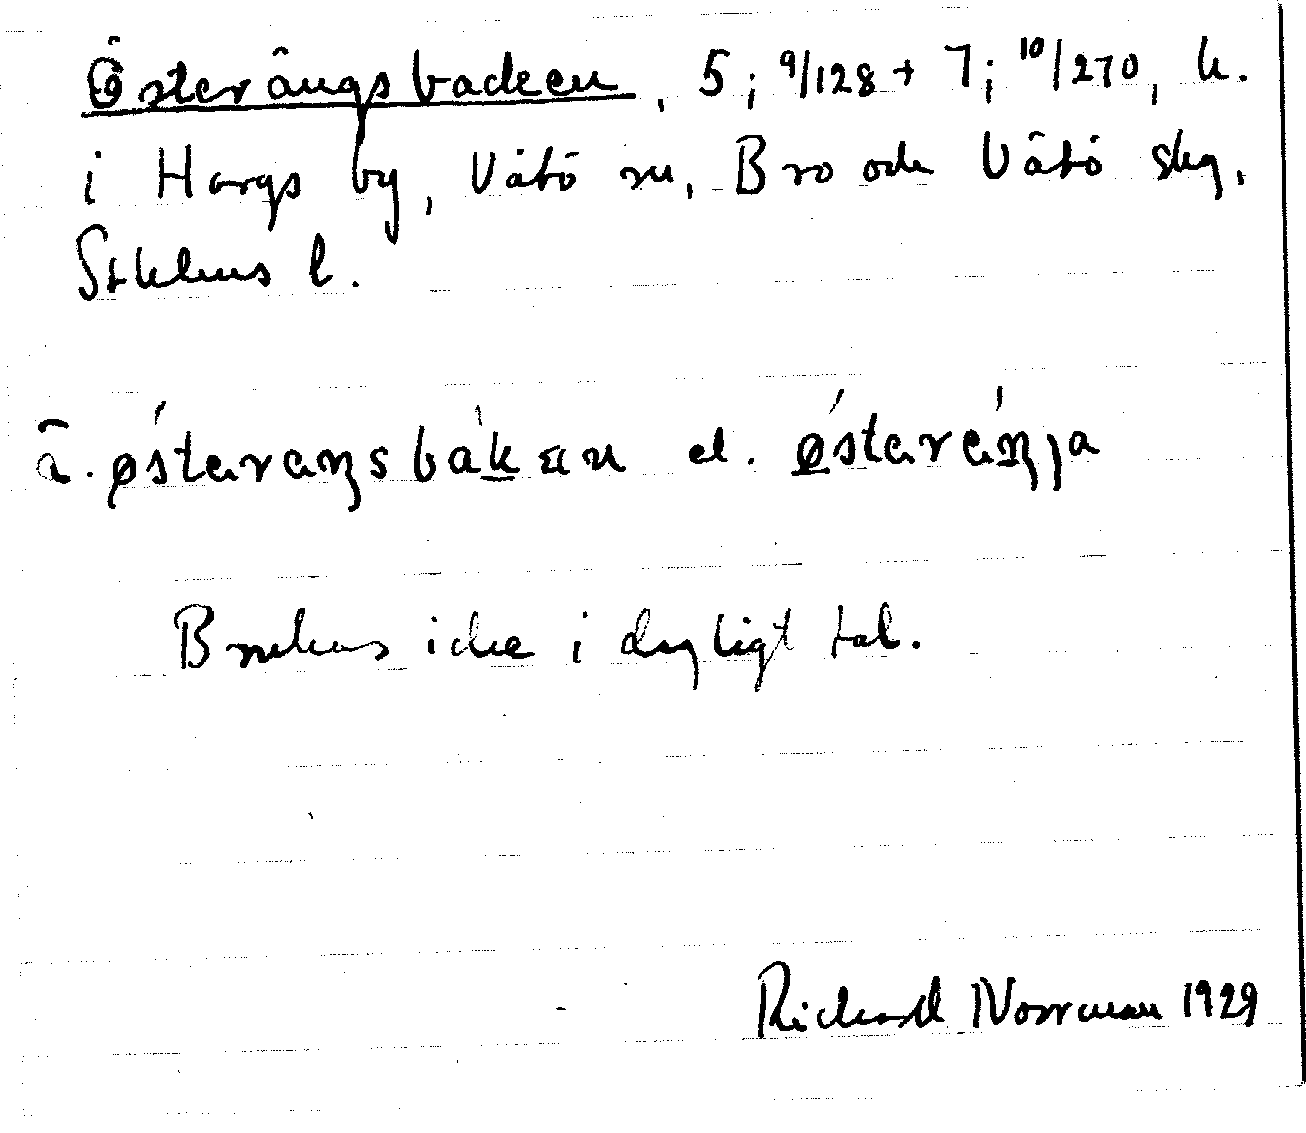 Österängsbacken, 5; 9/128 + 7; 10/270, h.
i Hargs by, Vätö sn, Bro och Vätö skg,
Sthlms l.
ä. østaraŋsbakan el. østaráŋja
Brukas icke i dagligt tal.
Richard Norrman 1929